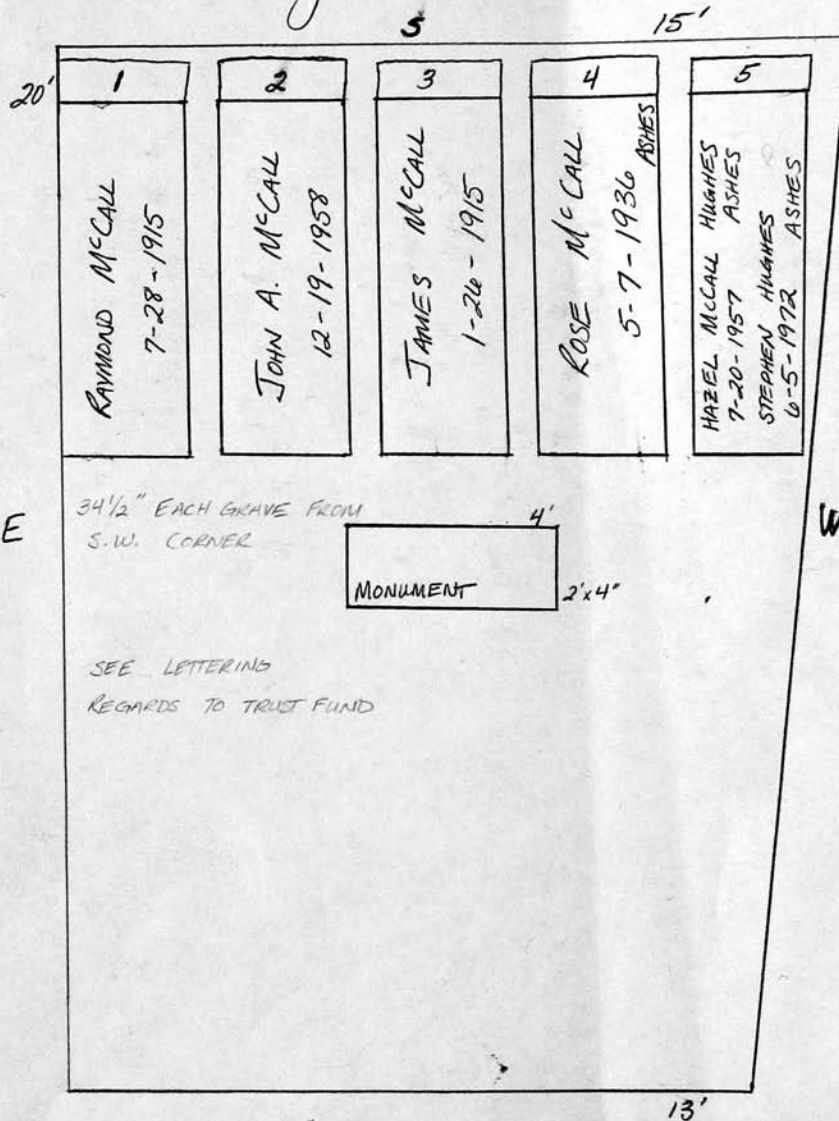 S
15'
20'
1
2
3
4
5
RAYMOND McCALL
7-28-1915
JOHN A. McCALL
12-19-1958
JAMES McCALL
1-26-1915
ROSE McCALL
5-7-1936 ASHES
HAZEL McCALL HUGHES
7-20-1957 ASHES
STEPHEN HUGHES
6-5-1972 ASHES
E
W
34 1/2" EACH GRAVE FROM
S.W. CORNER
4'
MONUMENT
2'x4"
SEE LETTERING
REGARDS TO TRUST FUND
13'